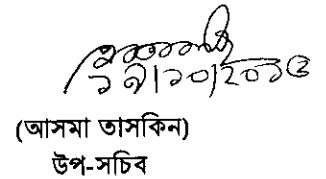 ১৭/১০/২০১৩
(আসমা তাসকিন)
উপ-সচিব